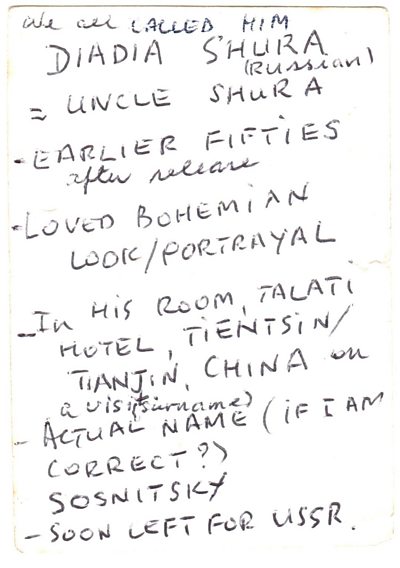 We all CALLED HIM
DIADIA S'HURA
(RUSSIAN)
= UNCLE SHURA
- EARLIER FIFTIES
after release
- LOVED BOHEMIAN
LOOK/PORTRAYAL
- IN HIS ROOM, TALATI
HOTEL, TIENTSIN/
TIANJIN, CHINA on
a visit
(surname)
- ACTUAL NAME (IF I AM
CORRECT?)
SOSNITSKY
- SOON LEFT FOR USSR.